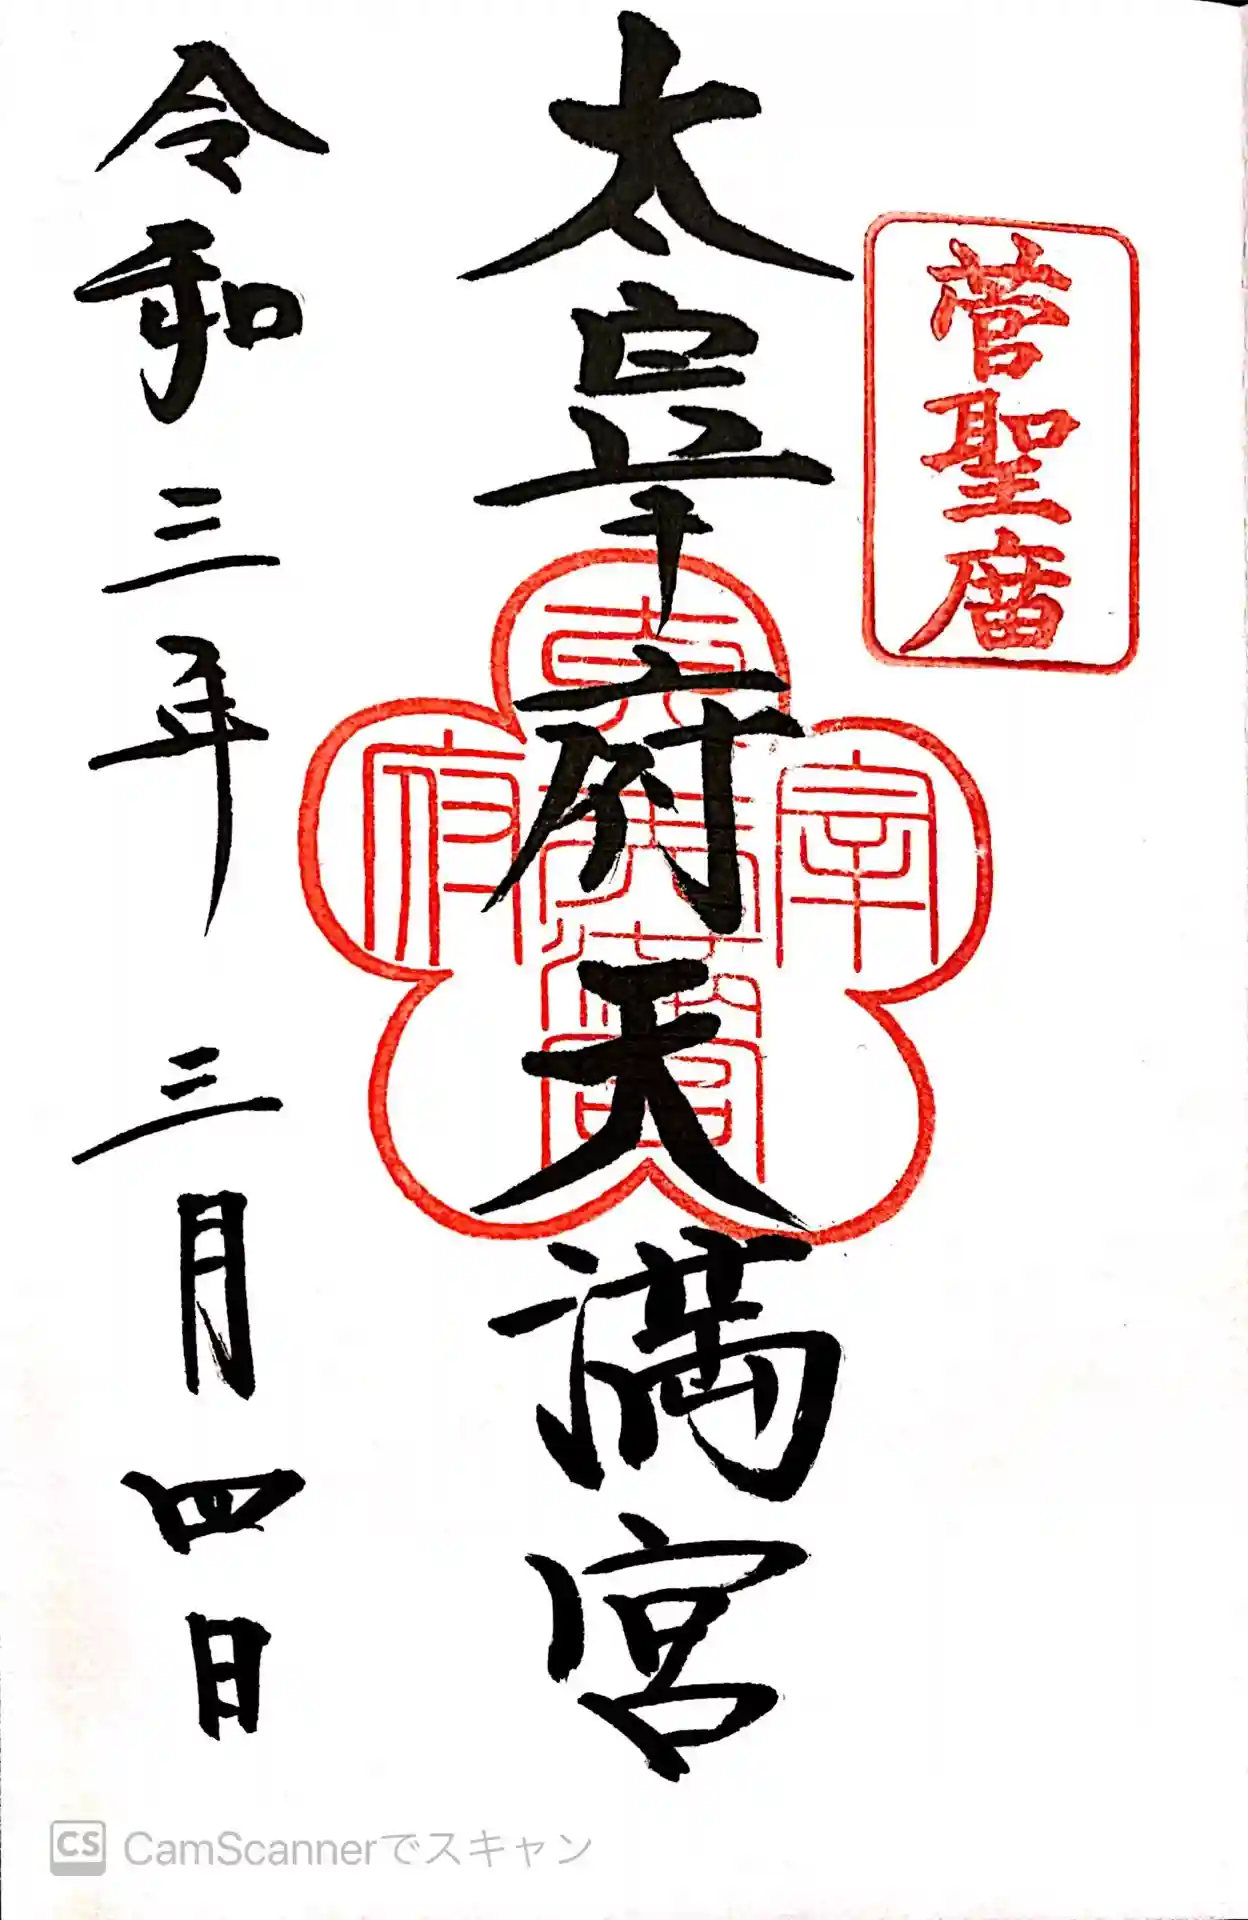 菅聖庿
太宰府天満宮
太
宰
府
天満宮
令和三年 三月四日
CS CamScannerでスキャン